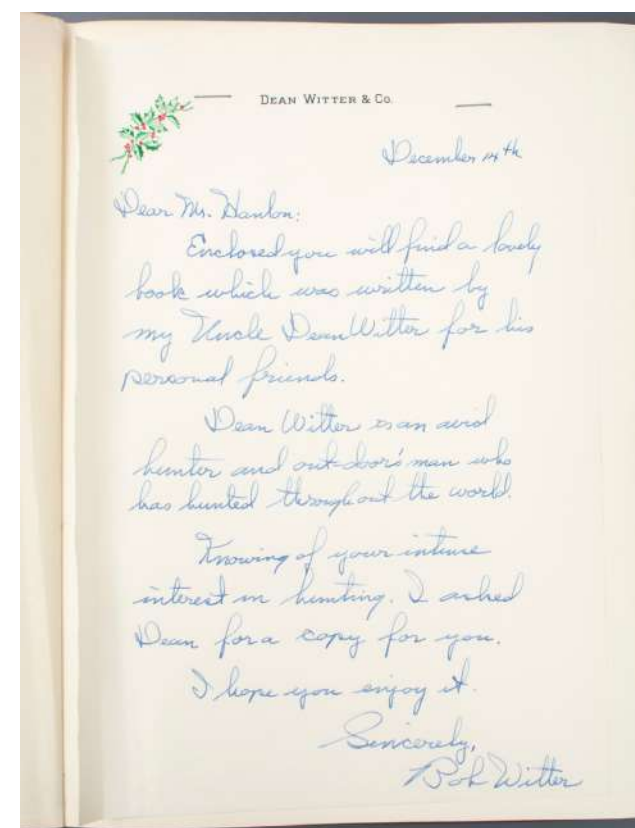 DEAN WITTER & CO.
December 14th
Dear Mr. Hanlon:
Enclosed you will find a lovely
book which was written by
my Uncle Dean Witter for his
personal friends.
Dean Witter is an avid
hunter and outdoors'man who
has hunted throughout the world.
Knowing of your intense
interest in hunting. I asked
Dean for a copy for you.
I hope you enjoy it.
Sincerely,
Bob Witter